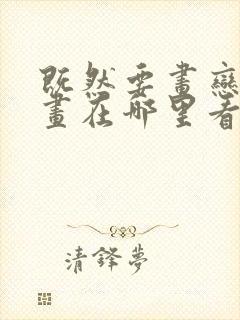 既然要畫戀
畫在哪里看
清鋒夢